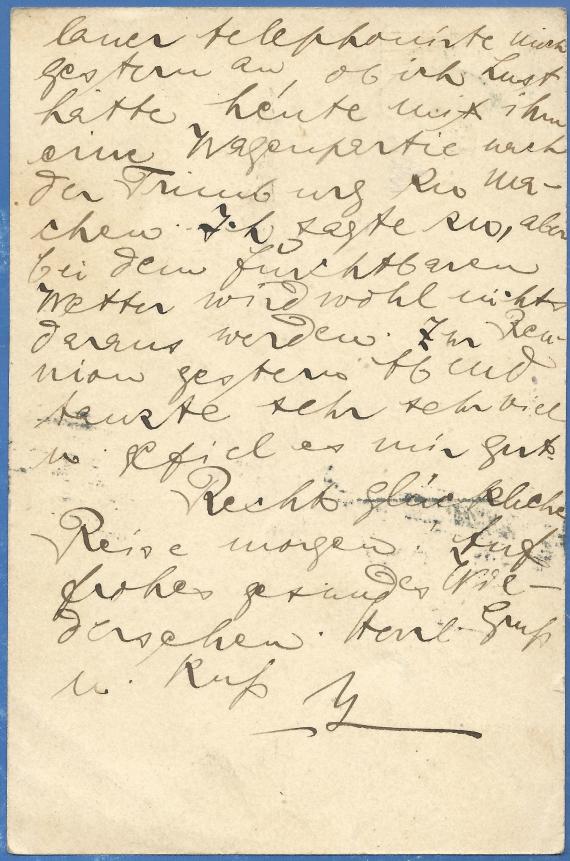 lauer telephonirte mich
gestern an, ob ich Lust
hätte heute mit ihm
eine Wagenpartie nach
der Trimburg zu ma-
chen. Ich sagte zu, aber
bei dem furchtbaren
Wetter wird wohl nichts
daraus werden. Zur Reu-
nion gestern Abend
tanzte sehr sehr viel
u. gefiel es mir gut.
Recht glückliche
Reise morgen. Auf
frohes gesundes Wie-
dersehen. Herzl. Gruß
u. Kuß